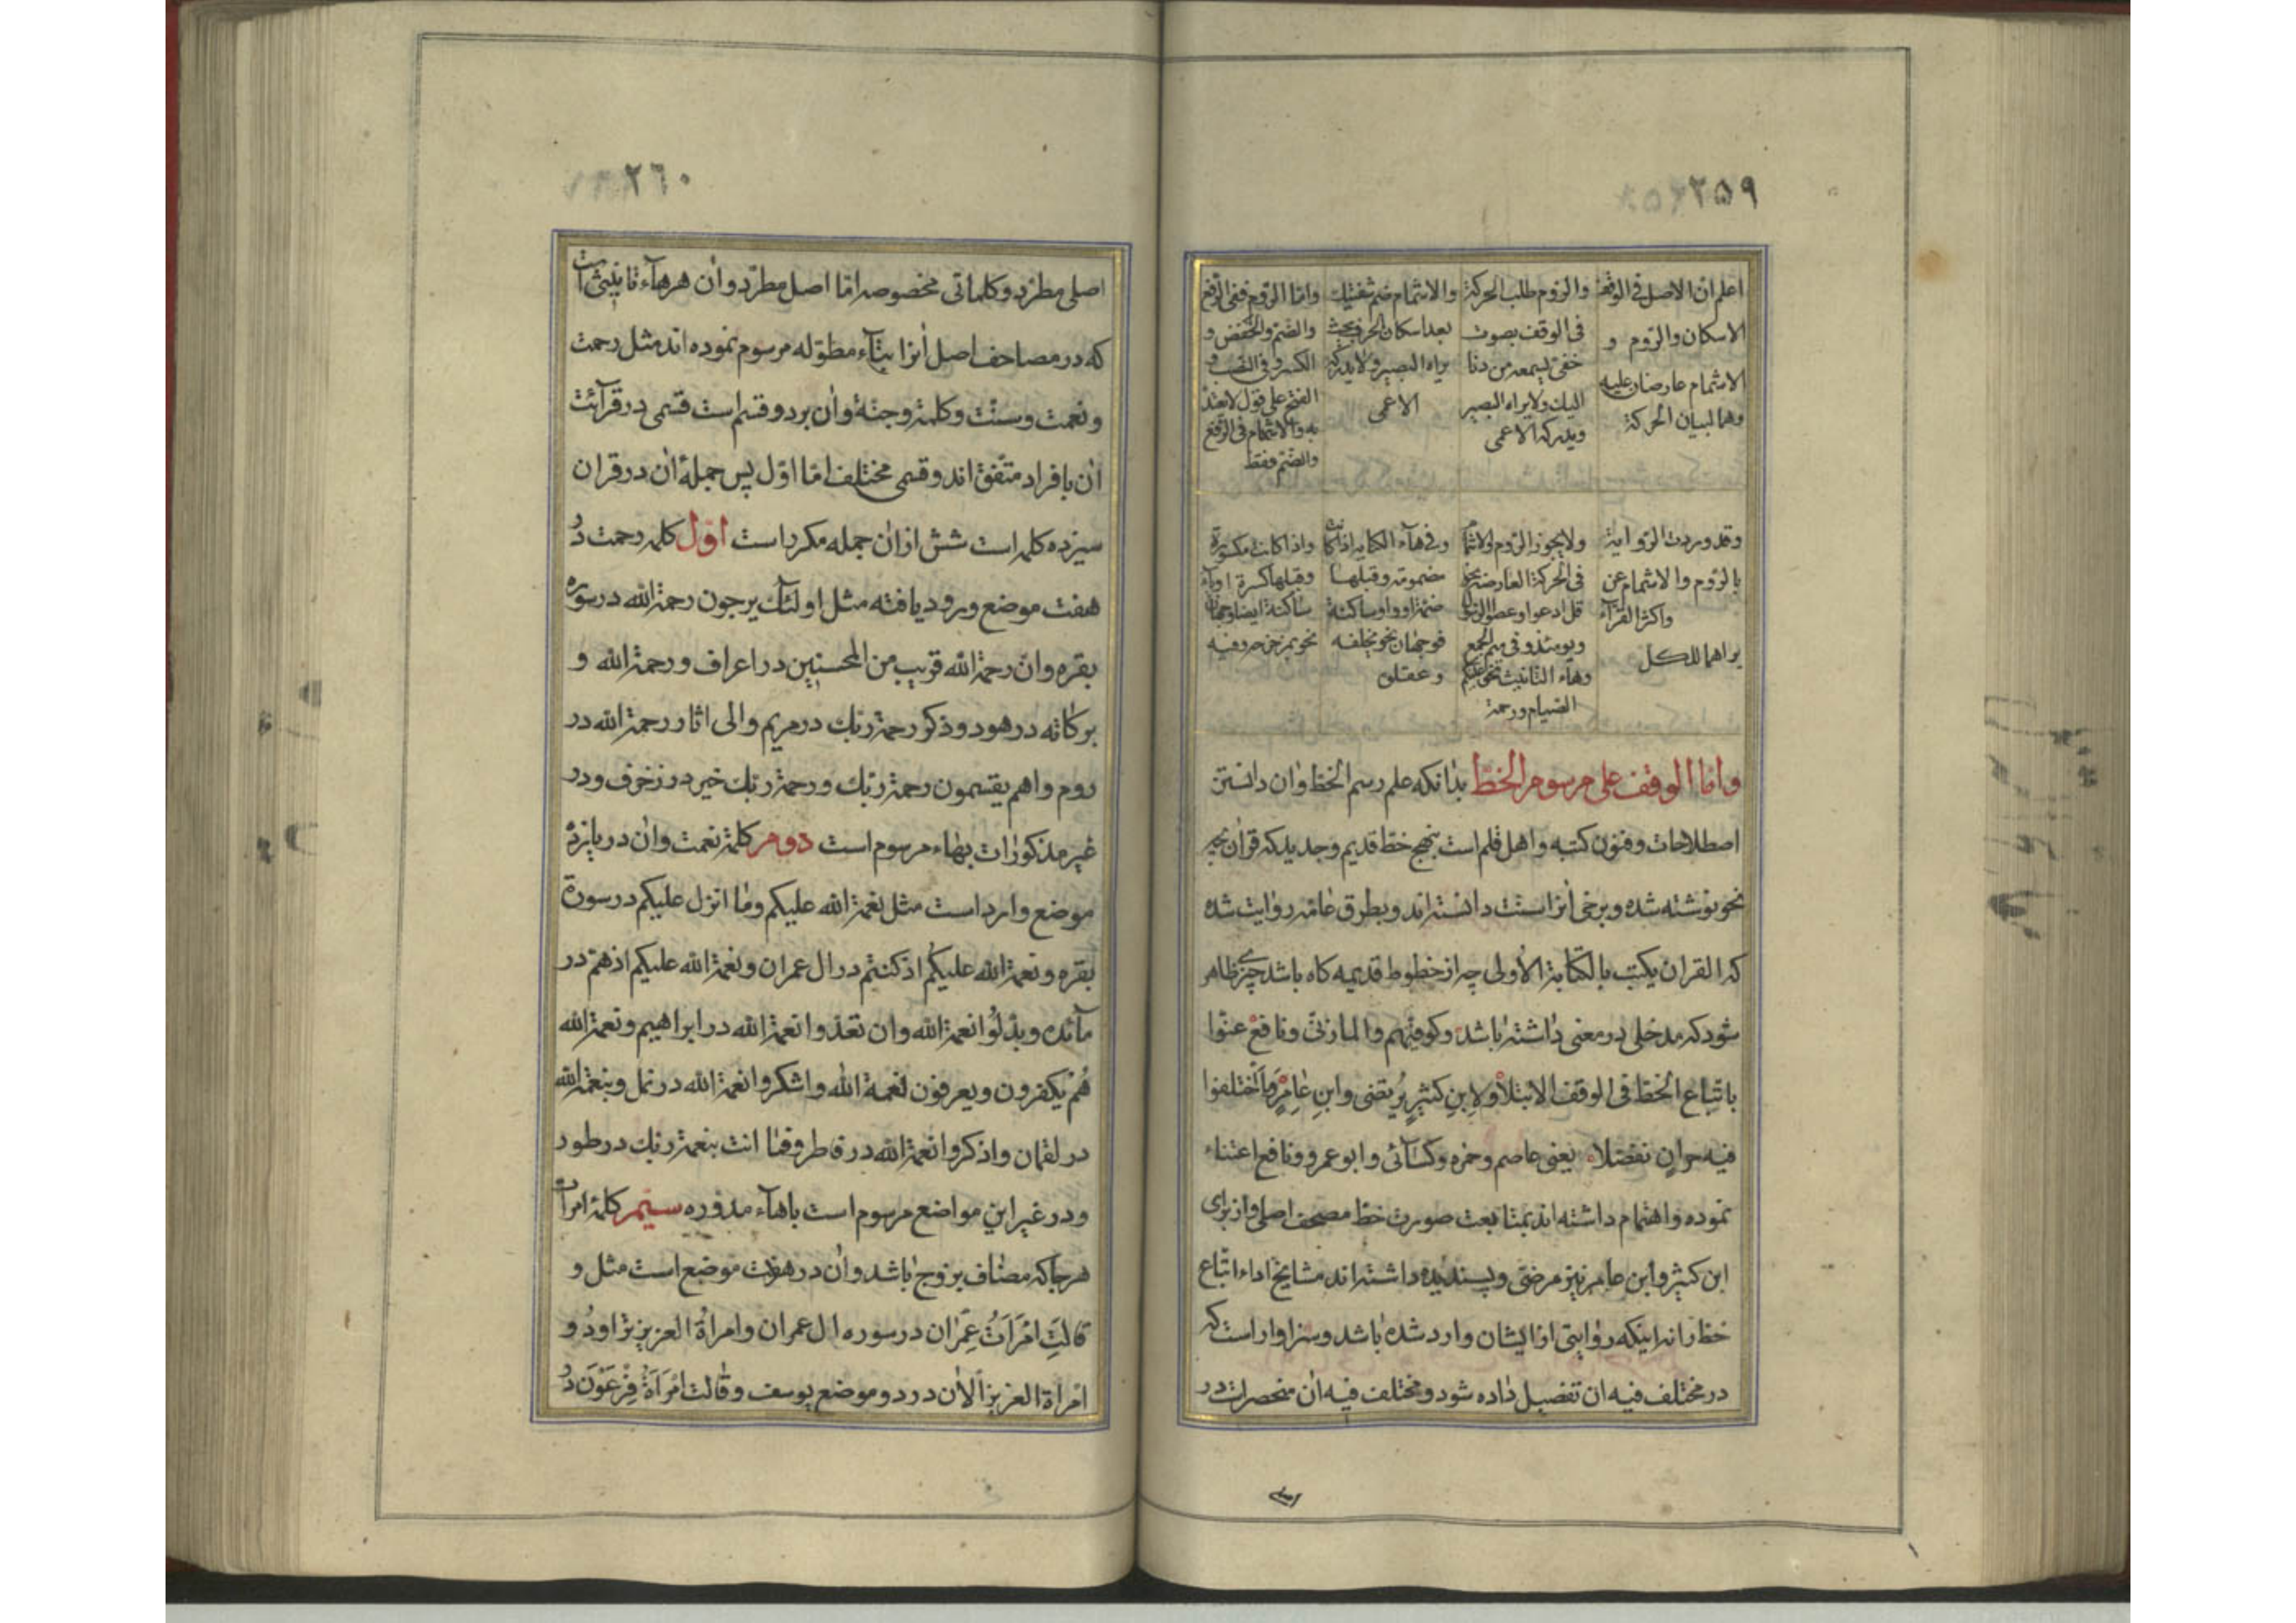 ٢٥٩
اعلم ان الاصل فی الوقف
الاسکان والرّوم و
الاشمام عارضان علیه
وهما لبیان الحرکة
والرّوم طلب الحرکة
فی الوقف بصوت
خفیّ یسمعه من دنا
الیك ولا یراه البصیر
ویدرکه الاعمی
والاشمام ضم شفتیك
بعد اسکان الحرف بحیث
یراه البصیر ولا یدرکه
الاعمی
وامّا الرّوم ففی الرّفع
والضّم والخفض و
الکسر وفی النّصب و
الفتح علی قول لا یعتدّ
به والاشمام فی الرّفع
والضّم فقط
وقد وردت الرّوایة
بالرّوم والاشمام عن
واکثر القرّآء
یراهما للکل
ولا یجوز الرّوم والاشمام
فی الحرکة العارضة نحو
قل ادعوا وعصوا الرّسول
ویومئذ وفی میم الجمع
وهآء التّانیث نحو علیکم
الصّیام ورحمة
وفی هآء الکنایه اذا کانت
مضمومة وقبلها
ضمّة او واو ساکنة
فوجهان نحو یخلفه
وعقلوه
واذا کانت مکسورة
وقبلها کسرة او یآء
ساکنة ایضا وجهان
نحو بمزحزحه وفیه
وامّا الوقف علی مرسوم الخطّ بدانکه علم رسم الخطّ وان دانستن
اصطلاحات وفنون کتبه واهل قلم است بنهج خطّ قدیم وجدید که قران بچه
نحو نوشته شده وبرخی انرا سنّت دانسته اند وبطرق عامّه روایت شده
که القران یکتب بالکتابة الأولی چه از خطوط قدیمه کاه باشد چیزی ظاهر
شود که مدخلی در معنی داشته باشد وکوفیّهم والمازنیّ ونافع عنوا
باتّباع الخطّ فی الوقف الابتلا ولابن کثیر یرتضی وابن عامر وما اختلفوا
فیه حر ان یفصّلا یعنی عاصم وحمزه وکسآئی وابو عمرو ونافع اعتناء
نموده واهتمام داشته اند بمتابعت صورت خطّ مصحف اصلی واز برای
ابن کثیر وابن عامر نیز مرضیّ وپسندیده داشته اند مشایخ اداء اتّباع
خطّ را نه اینکه روایتی از ایشان وارد شده باشد وسزاوار است که
در مختلف فیه ان تفصیل داده شود ومختلف فیه ان منحصرات در
اصلی
٢٦٠
اصلی مطرّد وکلماتی مخصوصه امّا اصل مطرّد وان هر هآء تانیثی است
که در مصاحف اصل انرا بتآء مطوّله مرسوم نموده اند مثل رحمت
ونعمت وسنّت وکلمة وجنّة وان بر دو قسم است قسمی در قرآئت
ان بافراد متّفق اند وقسمی مختلف امّا اوّل پس جملهٔ ان در قران
سیزده کلمه است شش از ان جمله مکرر است اوّل کلمه رحمت در
هفت موضع ورود یافته مثل اولئك یرجون رحمة الله در سوره
بقره وان رحمة الله قریب من المحسنین در اعراف ورحمة الله و
برکاته در هود وذکر رحمة ربّك در مریم والی اثار رحمة الله در
روم واهم یقسمون رحمة ربّك ورحمة ربّك خیر در زخرف ودر
غیر مذکورات بهاء مرسوم است دوم کلمة نعمت وان در یازده
موضع وارد است مثل نعمة الله علیکم وما انزل علیکم در سورة
بقره ونعمة الله علیکم اذ کنتم در ال عمران ونعمة الله علیکم اذ همّ در
مآئده وبدّلوا نعمة الله وان تعدّوا نعمة الله در ابراهیم ونعمة الله
هم یکفرون ویعرفون نعمة الله واشکروا نعمة الله در نحل وبنعمة الله
در لقمان واذکروا نعمة الله در فاطر وفما انت بنعمة ربّك در طور
ودر غیر این مواضع مرسوم است باهآء مدوّره سیّم کلمهٔ امرات
هر جا که مضاف بزوج باشد وان در هفت موضع است مثل و
قالت امرات عمران در سوره ال عمران وامراة العزیز تراود و
امراة العزیز الان در دو موضع یوسف وقالت امراة فرعون در